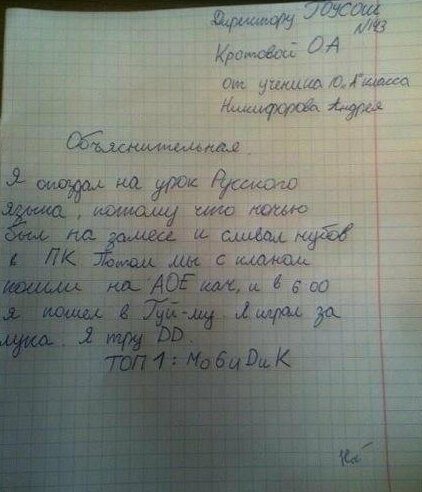 Директору ГОУСОШ
№143
Кротовой О А
от ученика 10 "А" класса
Никифорова Андрея
Объяснительная.
Я опоздал на урок Русского
языка, потому что ночью
был на замесе и сливал нубов
в ПК Потом мы с кланом
пошли на АОЕ кач, и в 6 00
я пошел в Гуй-му. Я играл за
лука. Я тру DD.
ТОП 1: Мо6иDиК